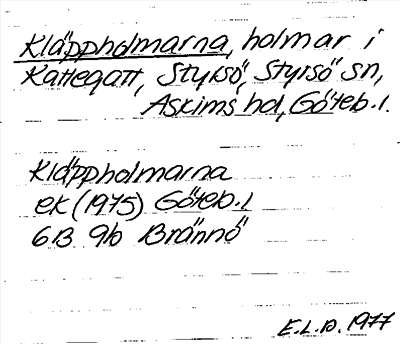 Kläppholmarna, holmar i
Kattegatt, Styrsö, Styrsö sn,
Askims hd, Göteb.l.
Kläppholmarna
ek (1975) Göteb.l
6B 9b Brännö
E.L.D. 1977